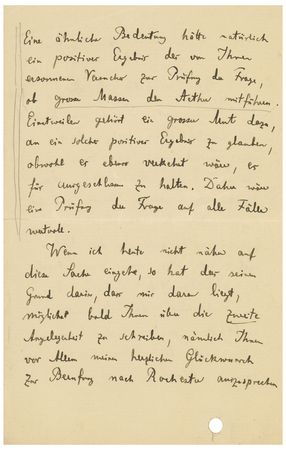 Eine ähnliche Bedeutung hätte natürlich
ein positives Ergebnis der von Ihnen
ersonnenen Versuche zur Prüfung der Frage,
ob grosse Massen den Aether mitführen.
Einstweilen gehört ein grosser Mut dazu,
an ein solches positives Ergebnis zu glauben,
obwohl es ebenso verkehrt wäre, es
für ausgeschlossen zu halten. Daher wäre
eine Prüfung der Frage auf alle Fälle
wertvoll.
Wenn ich heute nicht näher auf
diese Sache eingehe, so hat das seinen
Grund darin, dass mir daran liegt,
möglichst bald Ihnen über die zweite
Angelegenheit zu schreiben, nämlich Ihnen
vor Allem meinen herzlichen Glückwunsch
zur Berufung nach Rochester auszusprechen